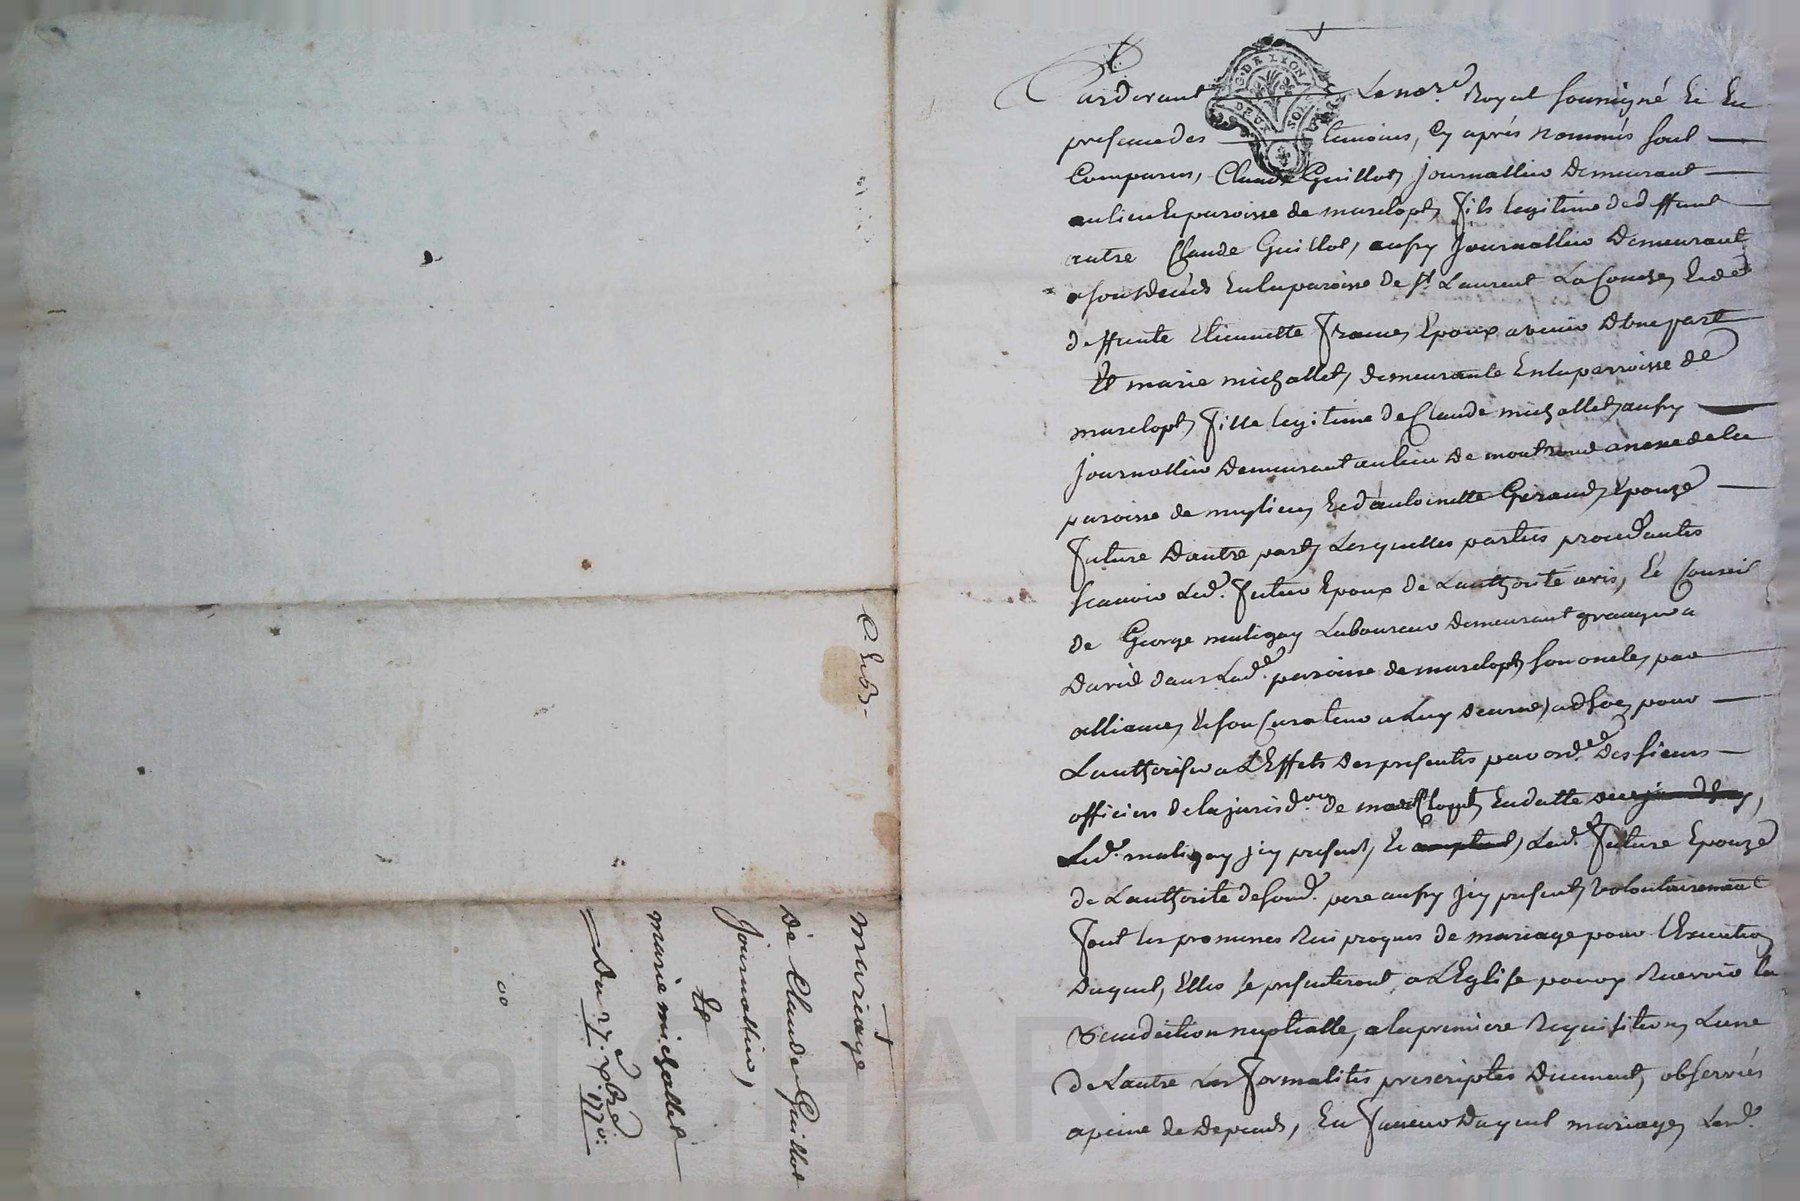 Pardevant Le no.re Royal soussigné Et En
presence des temoins, Cy aprés nommés sont
Comparus, Claude Guillot, journallier Demeurant
au lieu Et paroisse de marclopt, fils legitime de deffunt
autre Claude Guillot, aussy Journallier Demeurant
a son déces En la paroisse De St. Laurent La Conche, Et de
deffunte Etiennette Epoux avenir D'une part
Et marie michallet, demeurante En la parroisse de
marclopt, fille legitime de Claude michallet, aussy
journallier demeurant au lieu de montrond anexe de la
paroisse de meylieu, Et d'antoinette Giraud, Epouze
future D'autre part, Lesquelles parties procedantes
scavoir Led. futur Epoux de L'authorité avis, Et Conseil
de George matigay Laboureur demeurant
David dans Lad. paroisse de marclopt, son oncle, par
alliance, Et son Curateur a Luy decerné, adhoc, pour
L'authoriser a L'Effet Des presentes par ord.ce Des sieurs
officiers de la jurisd.on de marclopt, En datte
Led. matigay jcy present, Et Lad. future Epouze
de L'authorité de sond. pere aussy jcy present, volontairement
font les promesses Reciproques de mariage pour L'Execution
Duquel, Elles se presenteront a L'Eglise pour y Recevoir la
Benediction nuptialle, a la premiere Requisition, L'une
de L'autre Les formalités prescriptes Duement, observées
a peine de Depends, En faveur Duquel mariage, Lesd.
C. Led.
mariage
De Claude Guillot
Journallier,
Et
marie michallet
Du 27. xbre
1770.
00
G. DE LYON
DEUX SOLS